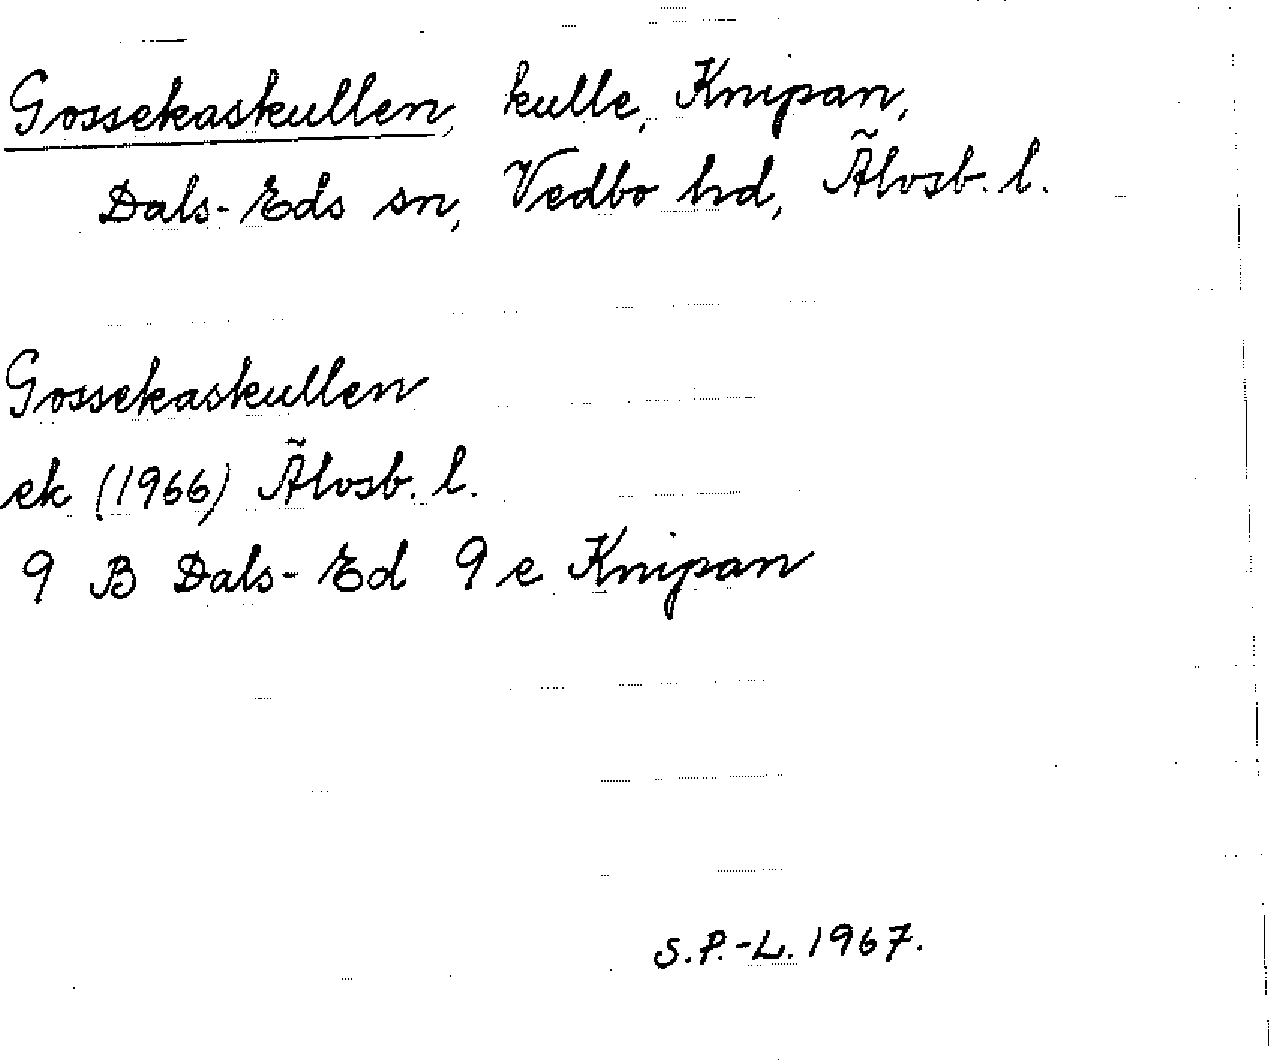 Gossekaskullen, kulle, Knipan,
Dals-Eds sn, Vedbo hd, Älvsb. l.
Gossekaskullen
ek (1966) Älvsb. l.
9 B Dals-Ed 9 e Knipan
S.P.-L. 1967.